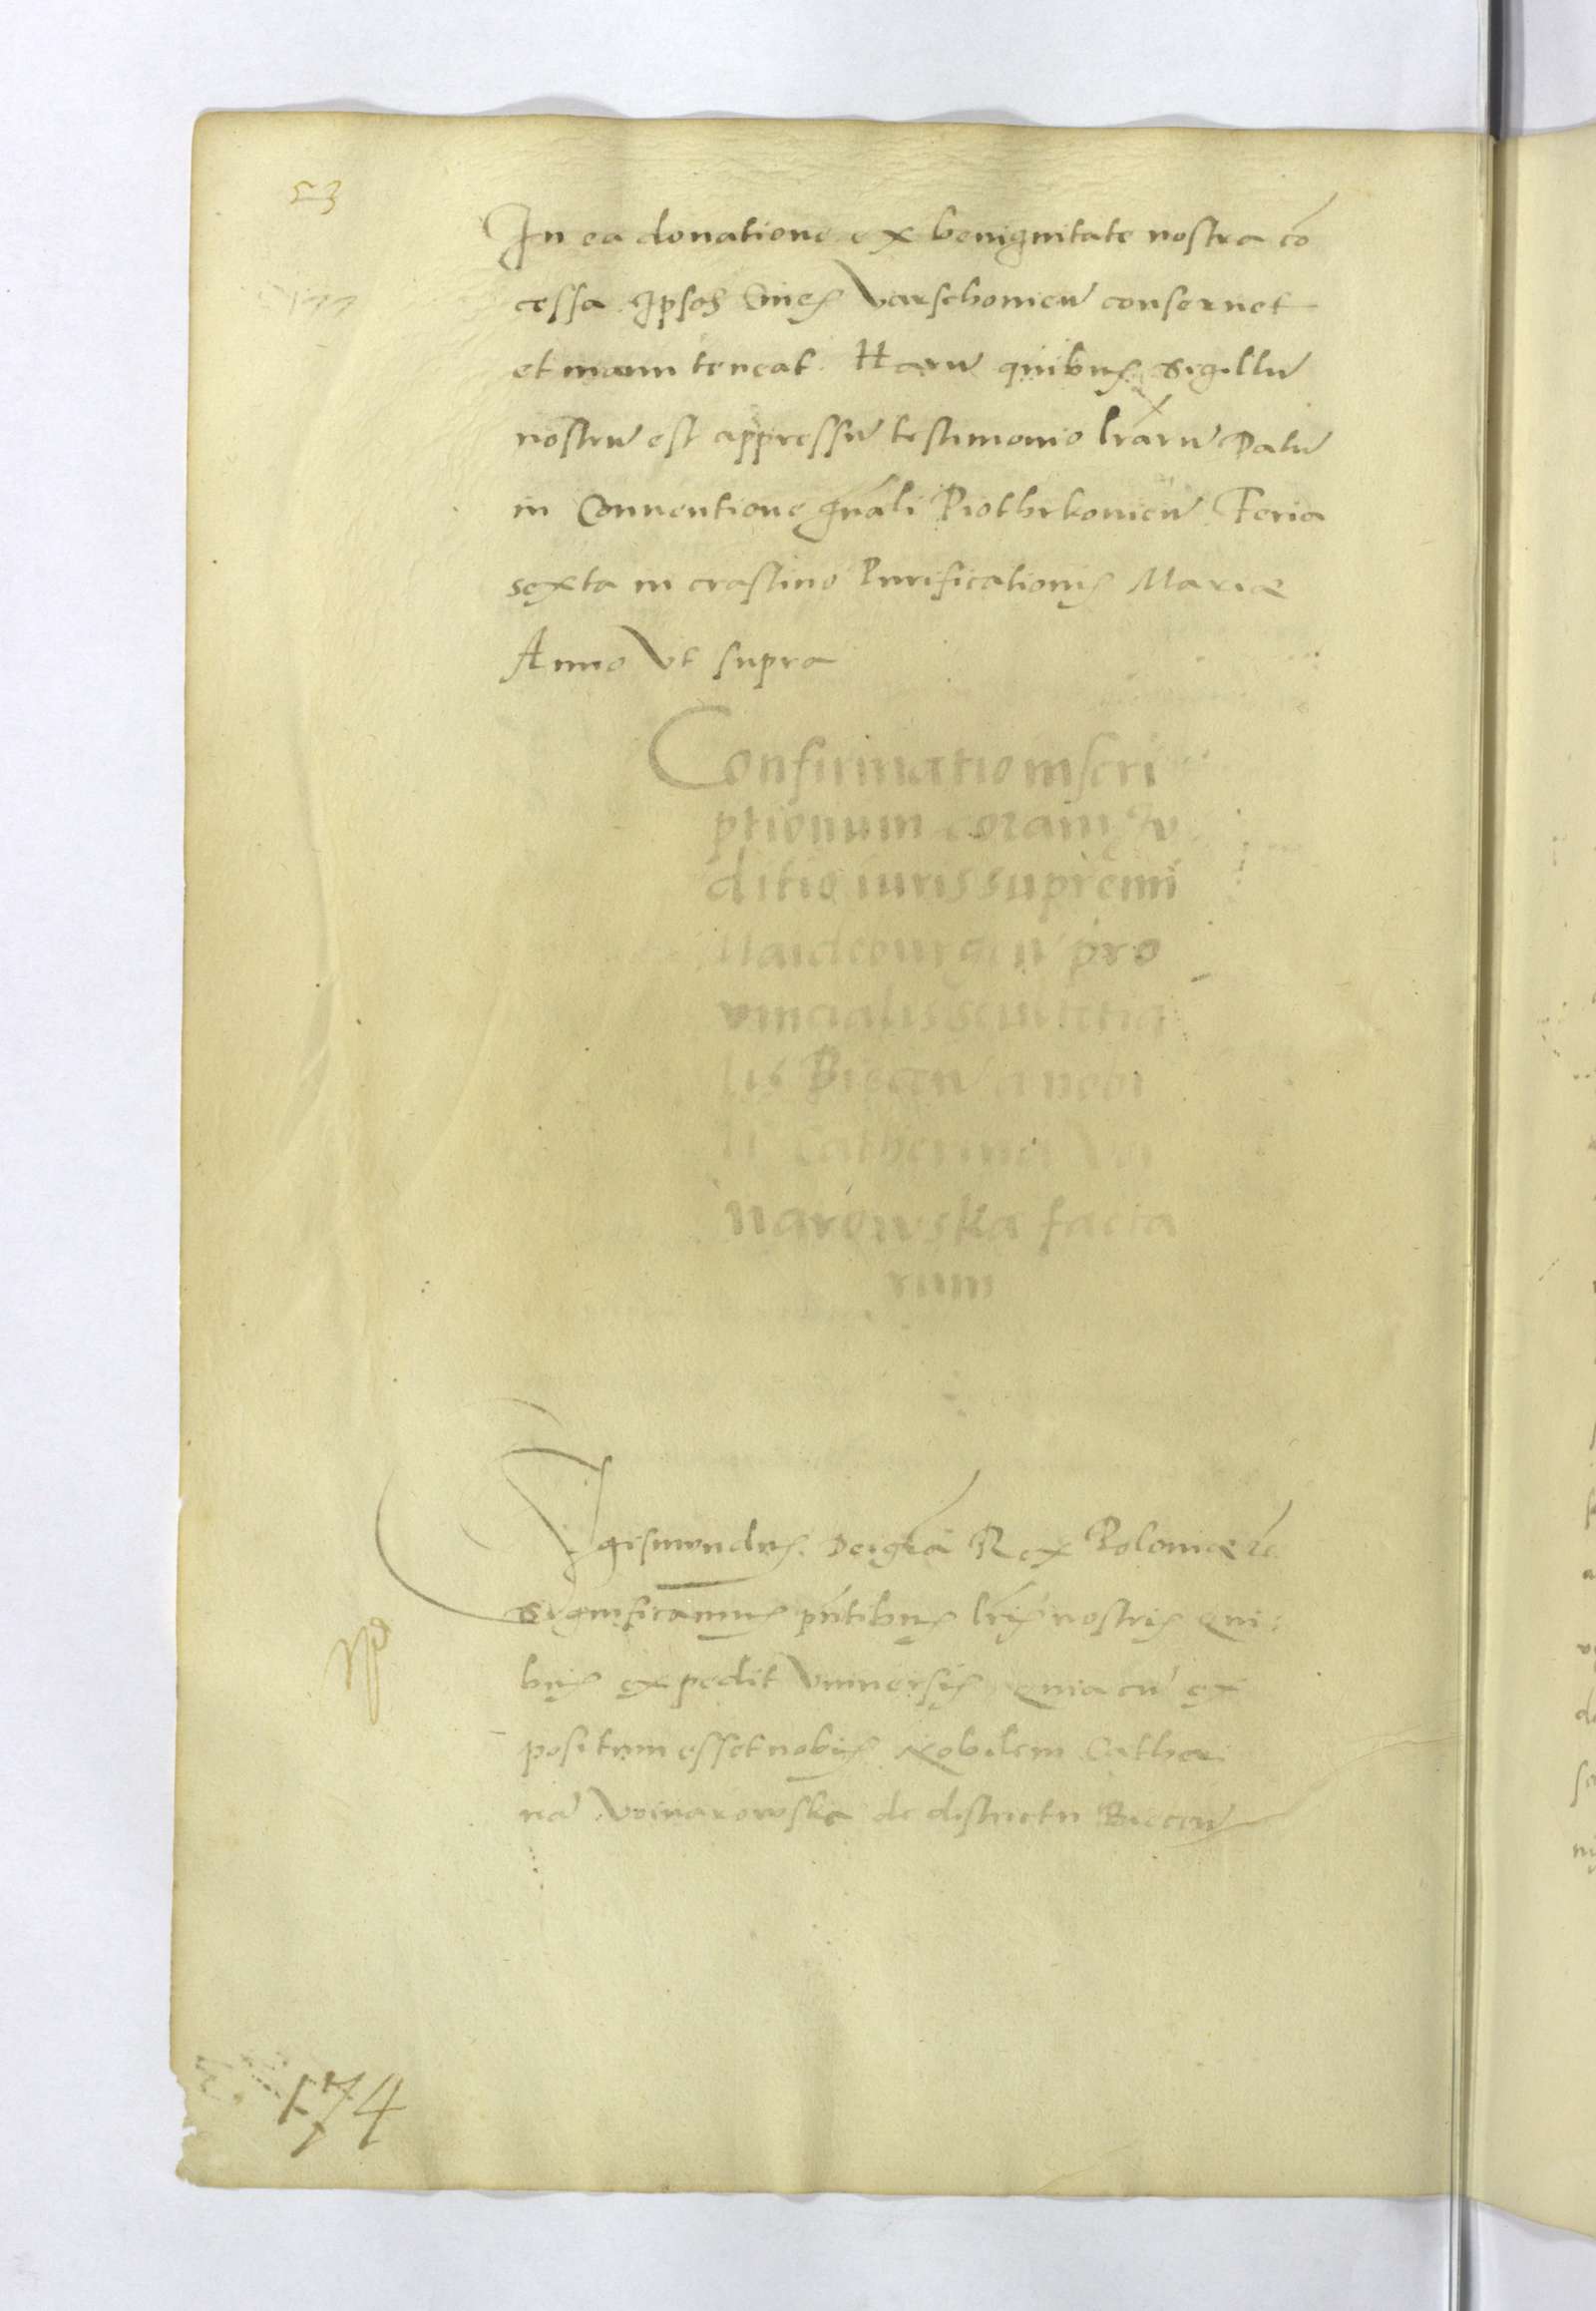 53
In ea donatione ex benignitate nostra cō
cessa Ipsos Ciues Varschouien̄ conseruet
et manu teneat Harū quibus sigillū
nostrū est appressū testimonio lr̄arū Datū
in Conuentione gn̄ali Piothrkouien̄ Feria
sexta in crastino Purificationis Mariæ
Anno Vt supra
Confirmatio inscri
ptionum coram Iu
ditio iuris supremi
Maideburgen̄ pro
uincialis scultetia
lis Biecen̄ a nobi
li Catherina Voi
narowska facta
rum
Sigismundus Dei gr̄a Rex Poloniæ ꝛc̄
Significamus pn̄tibus lr̄is nostris Qui
bus expedit Vniuersis Quia cū ex
positum esset nobis Nobilem Catheri
nā Voinarowska de districtu Biecen̄
174